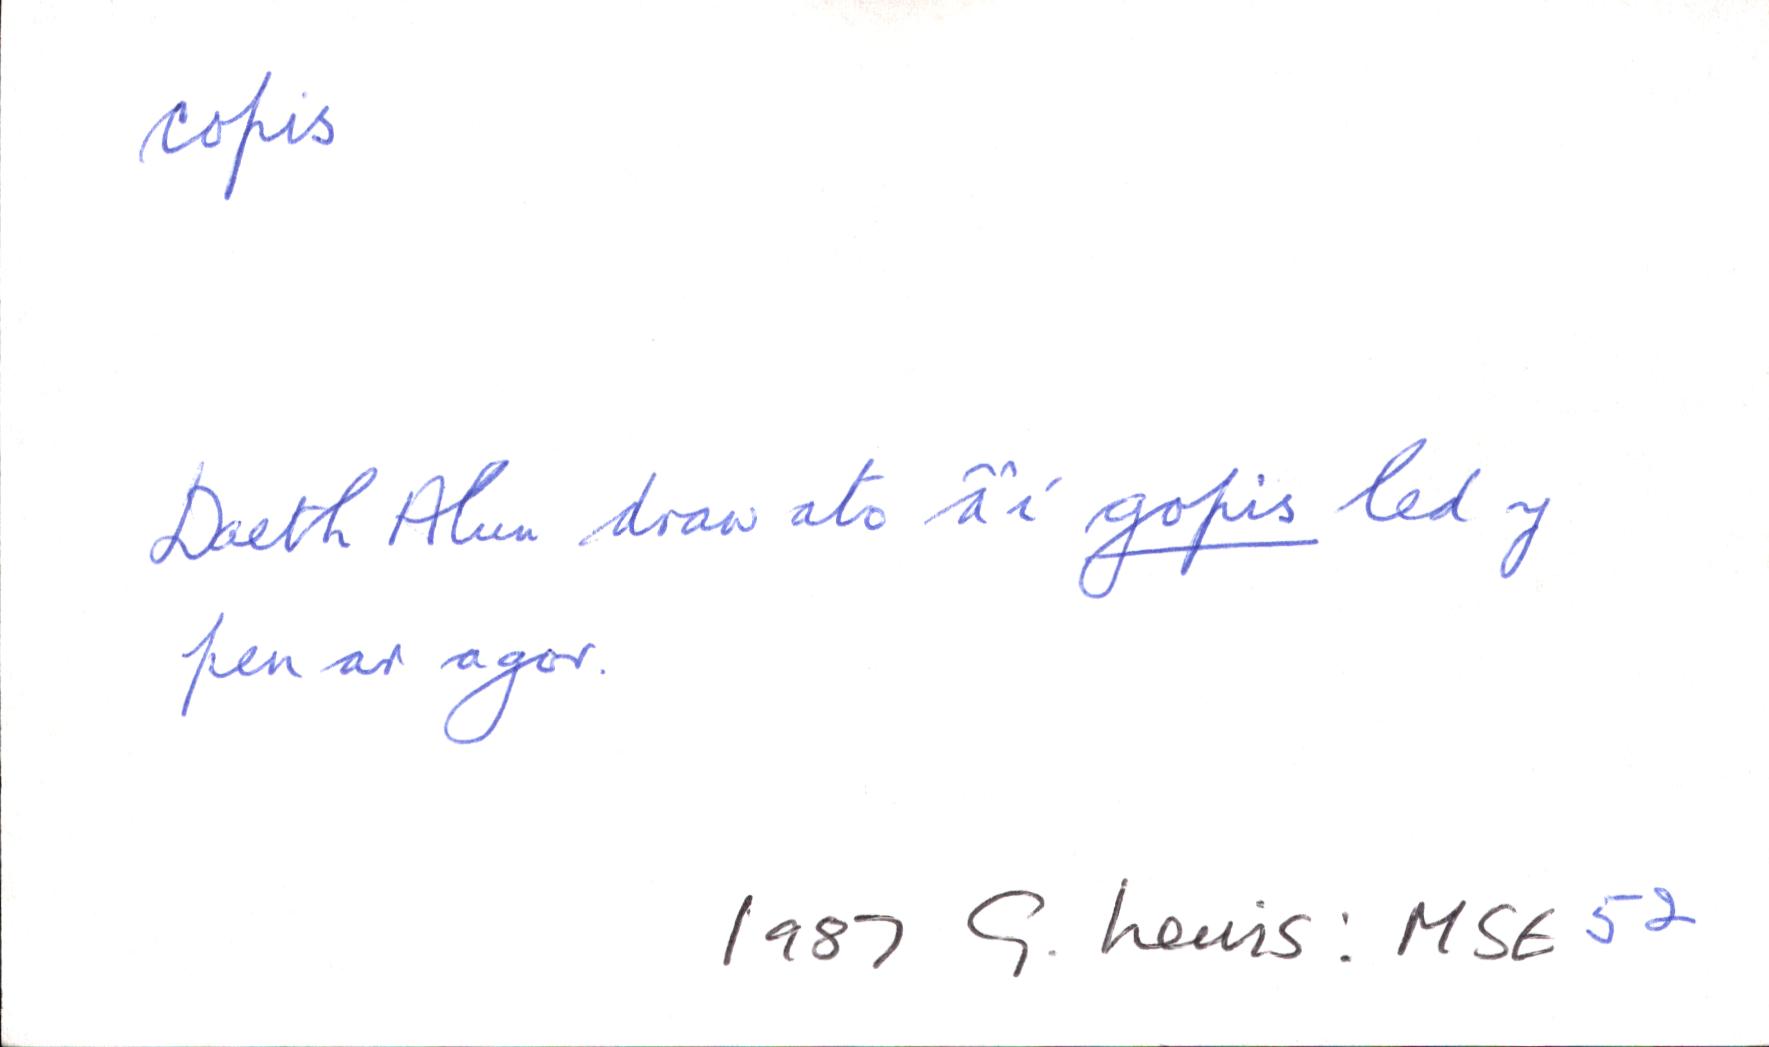 copis
Daeth Alun draw ato â'i gopis led y
pen ar agor.
1987 G. Lewis: MSE 52